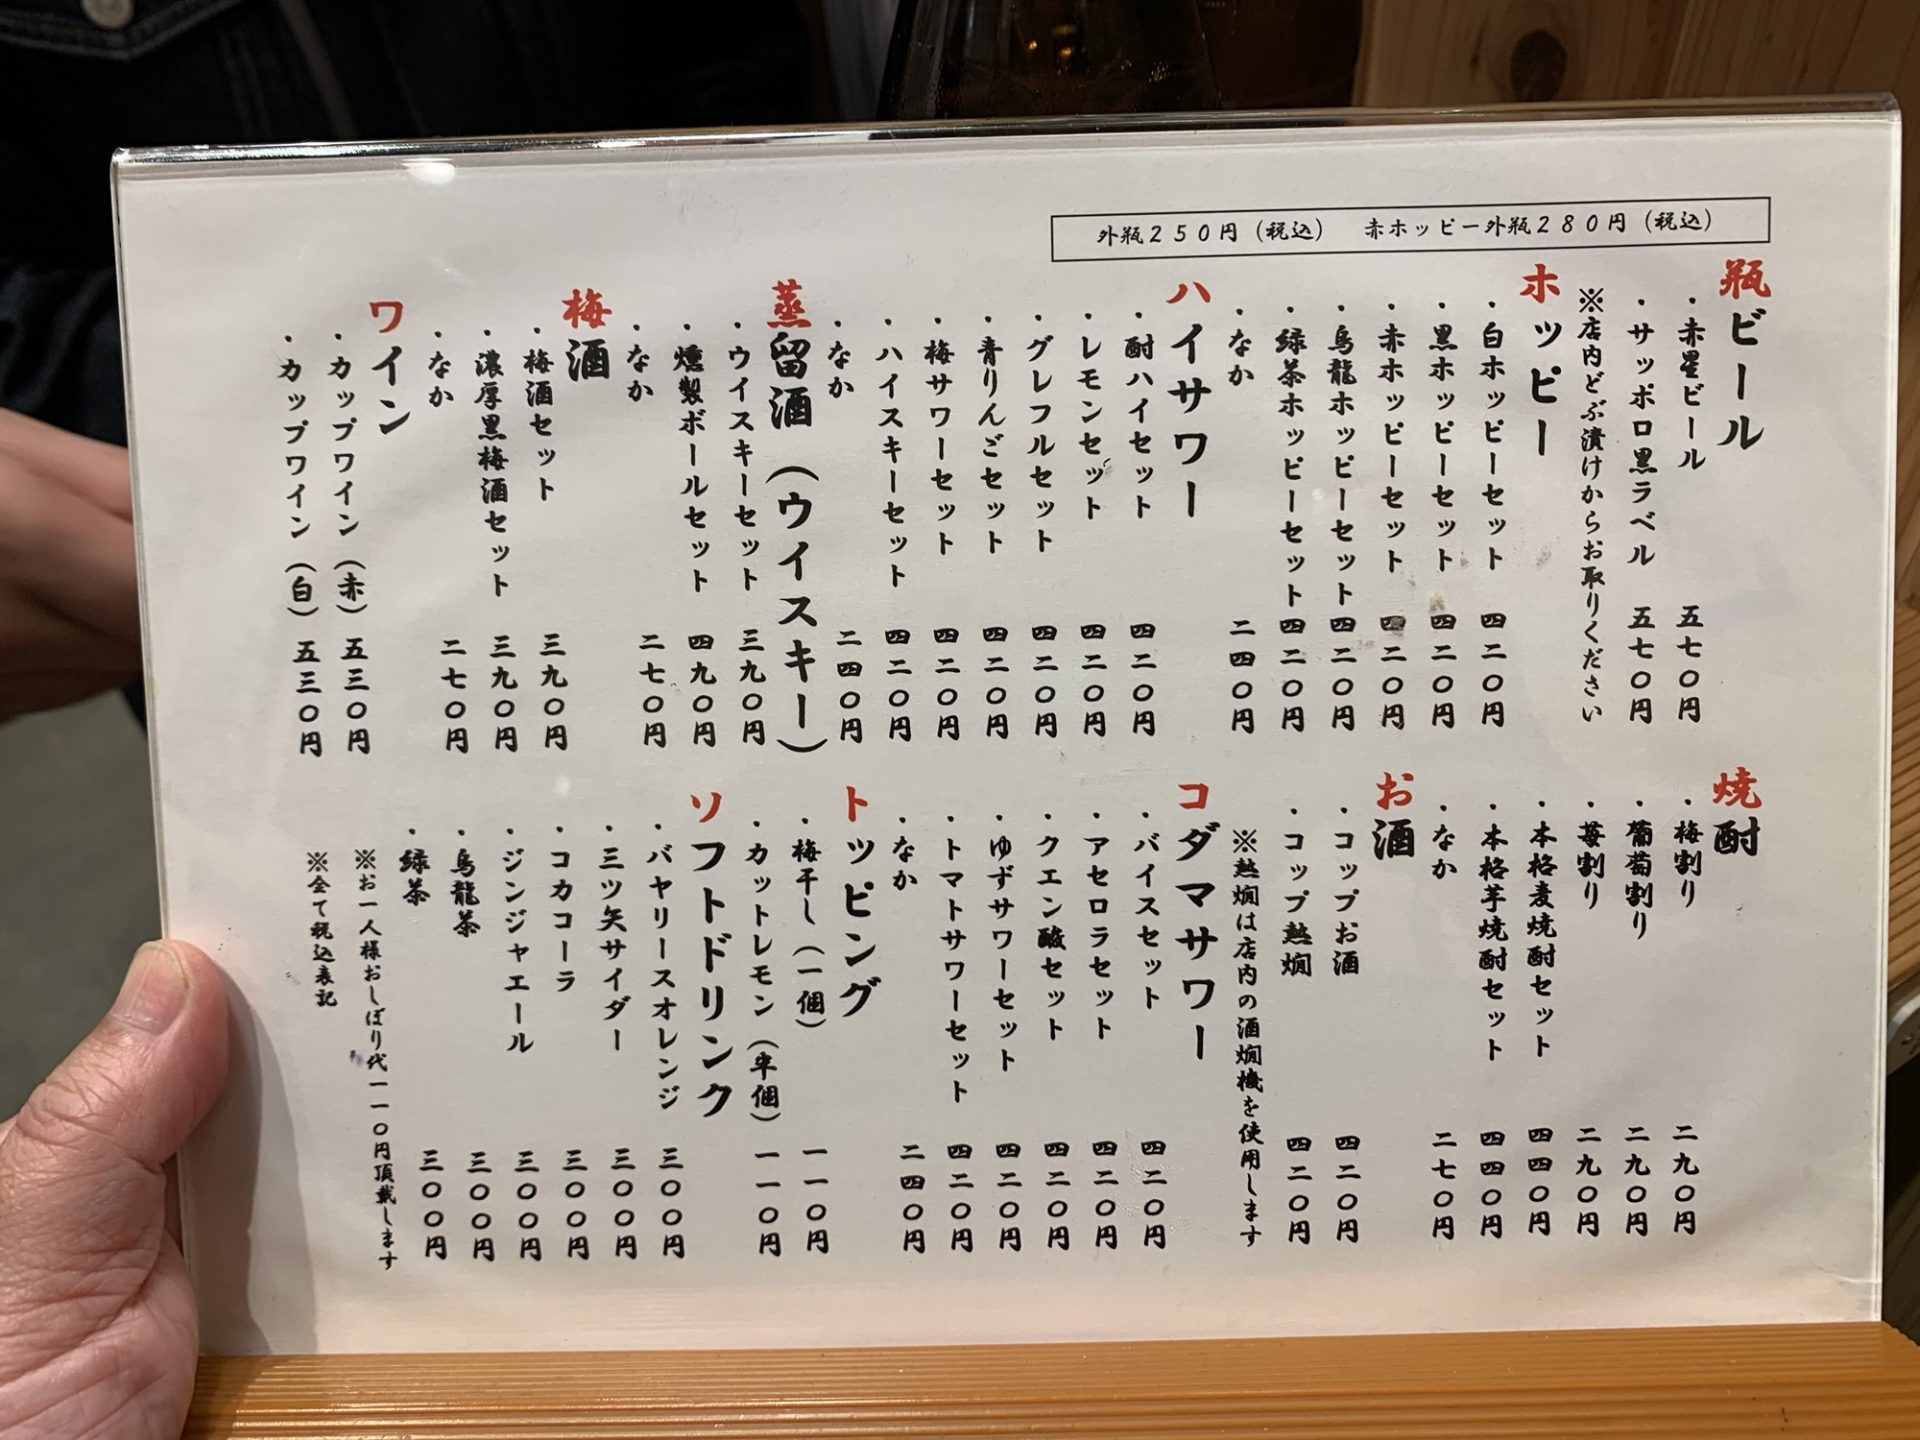 外瓶250円（税込）　赤ホッピー外瓶280円（税込）
瓶ビール
・赤星ビール 五七〇円
・サッポロ黒ラベル 五七〇円
※店内どぶ漬けからお取りください
ホッピー
・白ホッピーセット 四二〇円
・黒ホッピーセット 四二〇円
・赤ホッピーセット 四二〇円
・烏龍ホッピーセット 四二〇円
・緑茶ホッピーセット 四二〇円
・なか 二四〇円
ハイサワー
・酎ハイセット 四二〇円
・レモンセット 四二〇円
・グレフルセット 四二〇円
・青りんごセット 四二〇円
・梅サワーセット 四二〇円
・ハイスキーセット 四二〇円
・なか 二四〇円
蒸留酒（ウイスキー）
・ウイスキーセット 三九〇円
・燻製ボールセット 四九〇円
・なか 二七〇円
梅酒
・梅酒セット 三九〇円
・濃厚黒梅酒セット 三九〇円
・なか 二七〇円
ワイン
・カップワイン（赤） 五三〇円
・カップワイン（白） 五三〇円
焼酎
・梅割り 二九〇円
・葡萄割り 二九〇円
・苺割り 二九〇円
・本格麦焼酎セット 四四〇円
・本格芋焼酎セット 四四〇円
・なか 二七〇円
お酒
・コップお酒 四二〇円
・コップ熱燗 四二〇円
※熱燗は店内の酒燗機を使用します
コダマサワー
・バイスセット 四二〇円
・アセロラセット 四二〇円
・クエン酸セット 四二〇円
・ゆずサワーセット 四二〇円
・トマトサワーセット 四二〇円
・なか 二四〇円
トッピング
・梅干し（一個） 一一〇円
・カットレモン（半個） 一一〇円
ソフトドリンク
・バヤリースオレンジ 三〇〇円
・三ツ矢サイダー 三〇〇円
・コカコーラ 三〇〇円
・ジンジャエール 三〇〇円
・烏龍茶 三〇〇円
・緑茶 三〇〇円
※お一人様おしぼり代一一〇円頂戴します
※全て税込表記